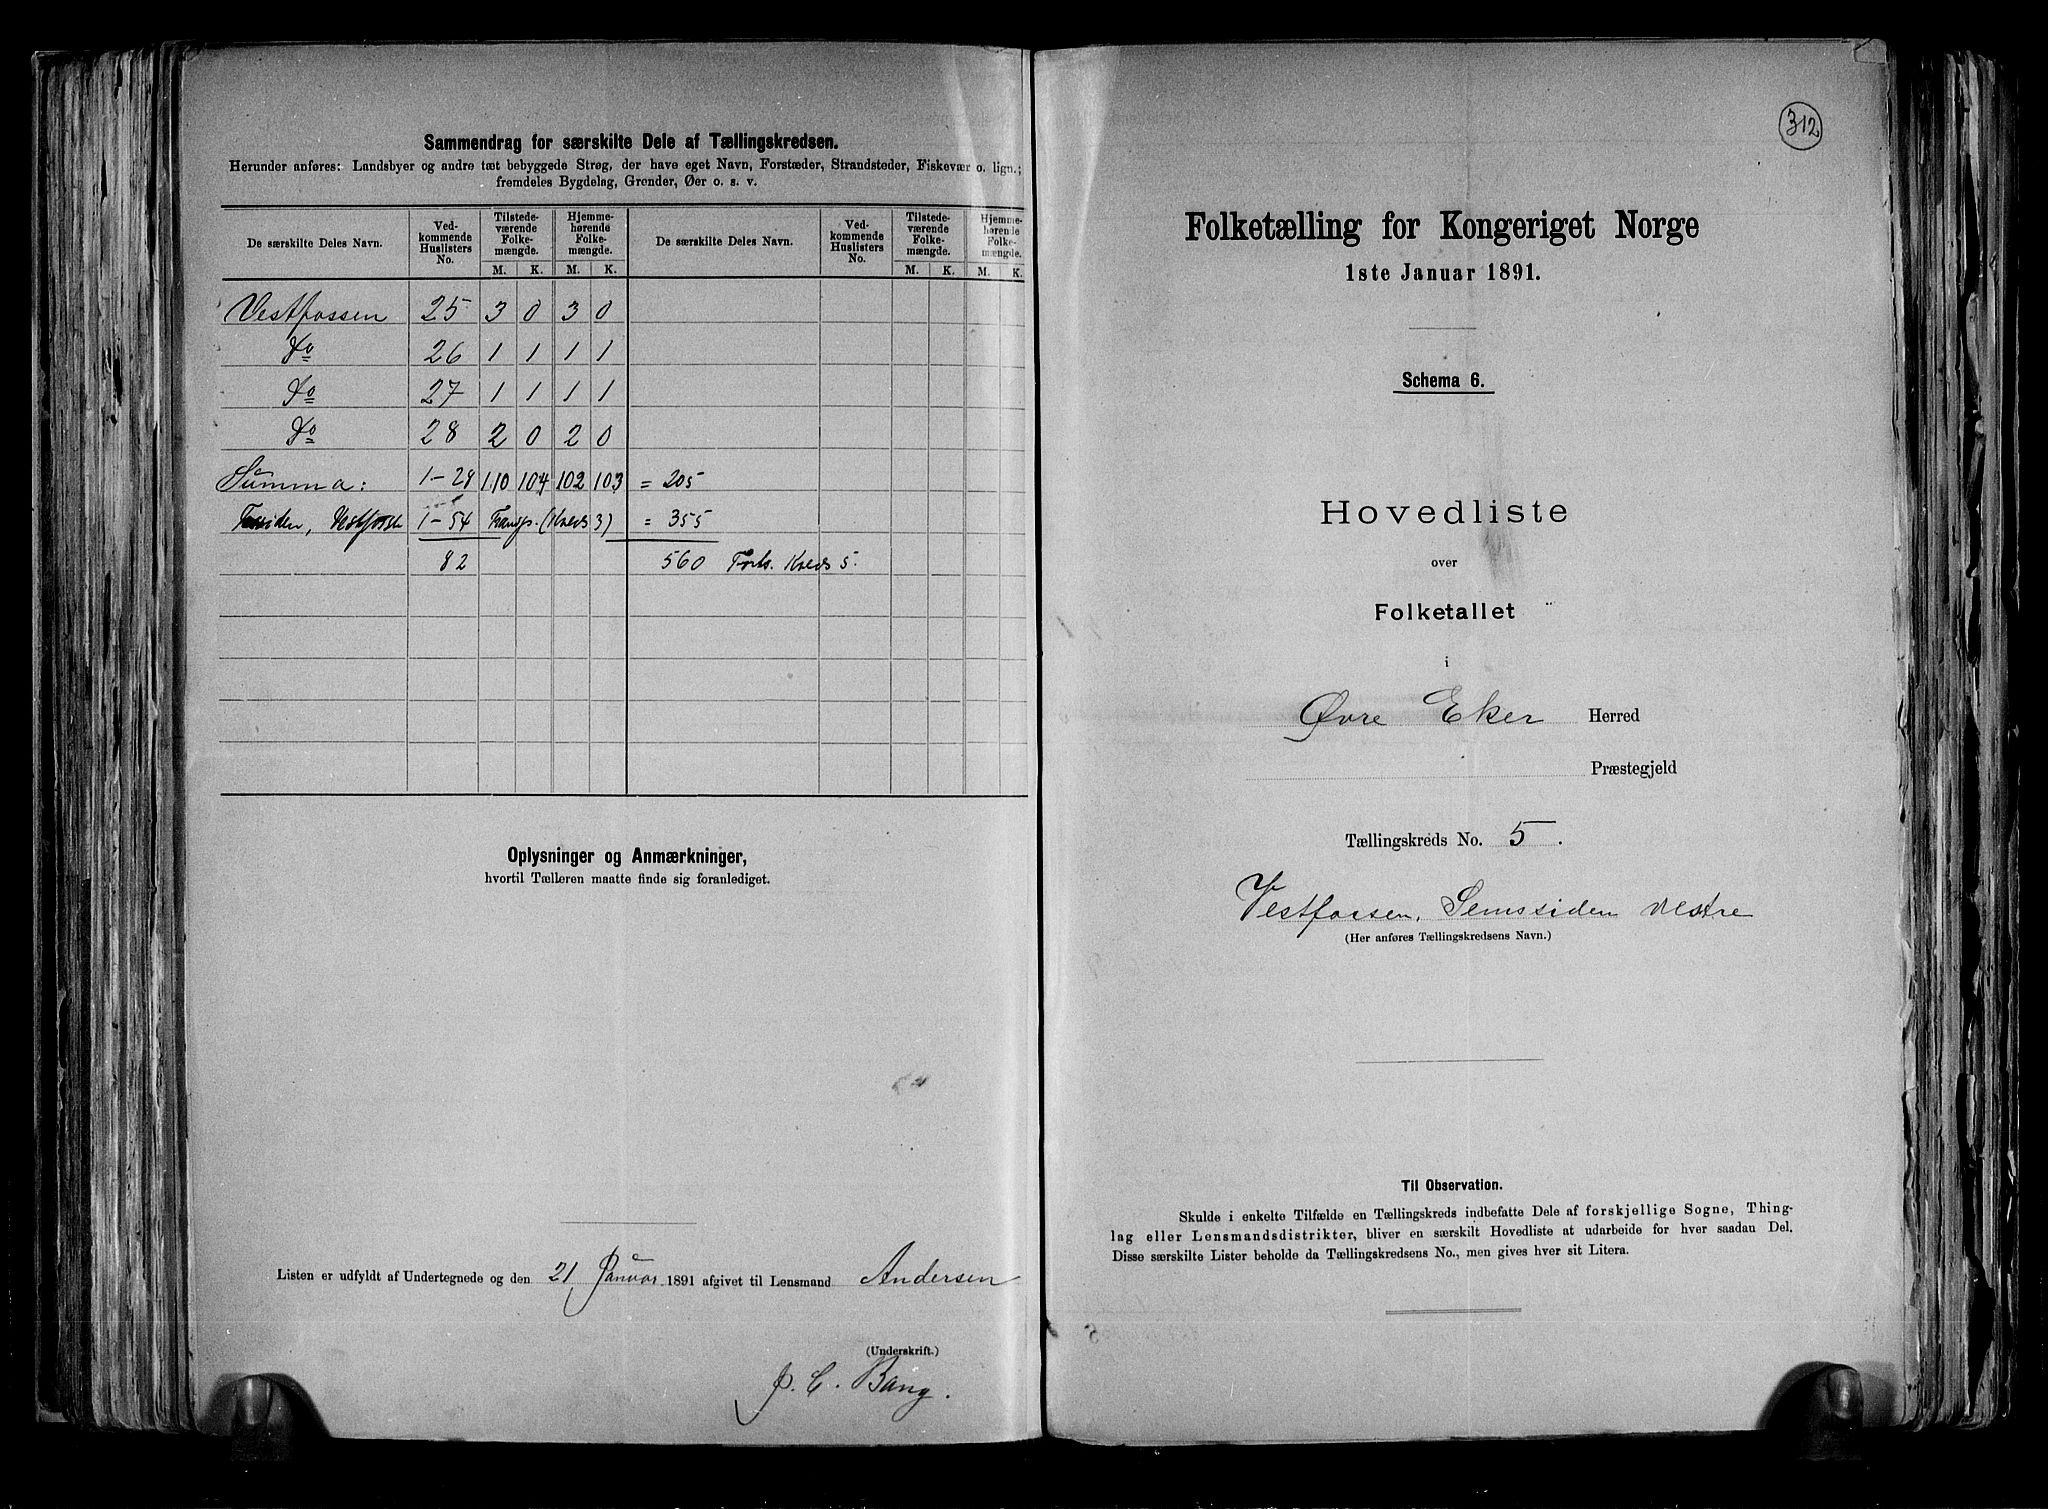 Sammendrag for særskilte Dele af Tællingskredsen.
Herunder anføres: Landsbyer og andre tæt bebyggede Strøg, der have eget Navn, Forstæder, Strandsteder, Fiskevær o. lign.;
fremdeles Bygdelag, Grender, Øer o. s. v.
De særskilte Deles Navn. Ved-kommende Huslisters No. Tilstede-værende Folke-mængde. Hjemme-hørende Folke-mængde. De særskilte Deles Navn. Ved-kommende Huslisters No. Tilstede-værende Folke-mængde. Hjemme-hørende Folke-mængde.
M. K. M. K. M. K. M. K.
Vestfossen 25 3 0 3 0
Do 26 1 1 1 1
Do 27 1 1 1 1
Do 28 2 0 2 0
Summa: 1-28 110 104 102 103 = 205
1-54 Transp. (Kreds 3) = 355
82 560 Forts. Kreds 5.
Oplysninger og Anmærkninger,
hvortil Tælleren maatte finde sig foranlediget.
Listen er udfyldt af Undertegnede og den 21 Januar 1891 afgivet til Lensmand Andersen
(Underskrift.)
J. C. Bang.
312
Folketælling for Kongeriget Norge
1ste Januar 1891.
Schema 6.
Hovedliste
over
Folketallet
i
Øvre Eker Herred
Præstegjeld
Tællingskreds No. 5.
Vestfossen, Semssiden vestre
(Her anføres Tællingskredsens Navn.)
Til Observation.
Skulde i enkelte Tilfælde en Tællingskreds indbefatte Dele af forskjellige Sogne, Thing-
lag eller Lensmandsdistrikter, bliver en særskilt Hovedliste at udarbeide for hver saadan Del.
Disse særskilte Lister beholde da Tællingskredsens No., men gives hver sit Litera.